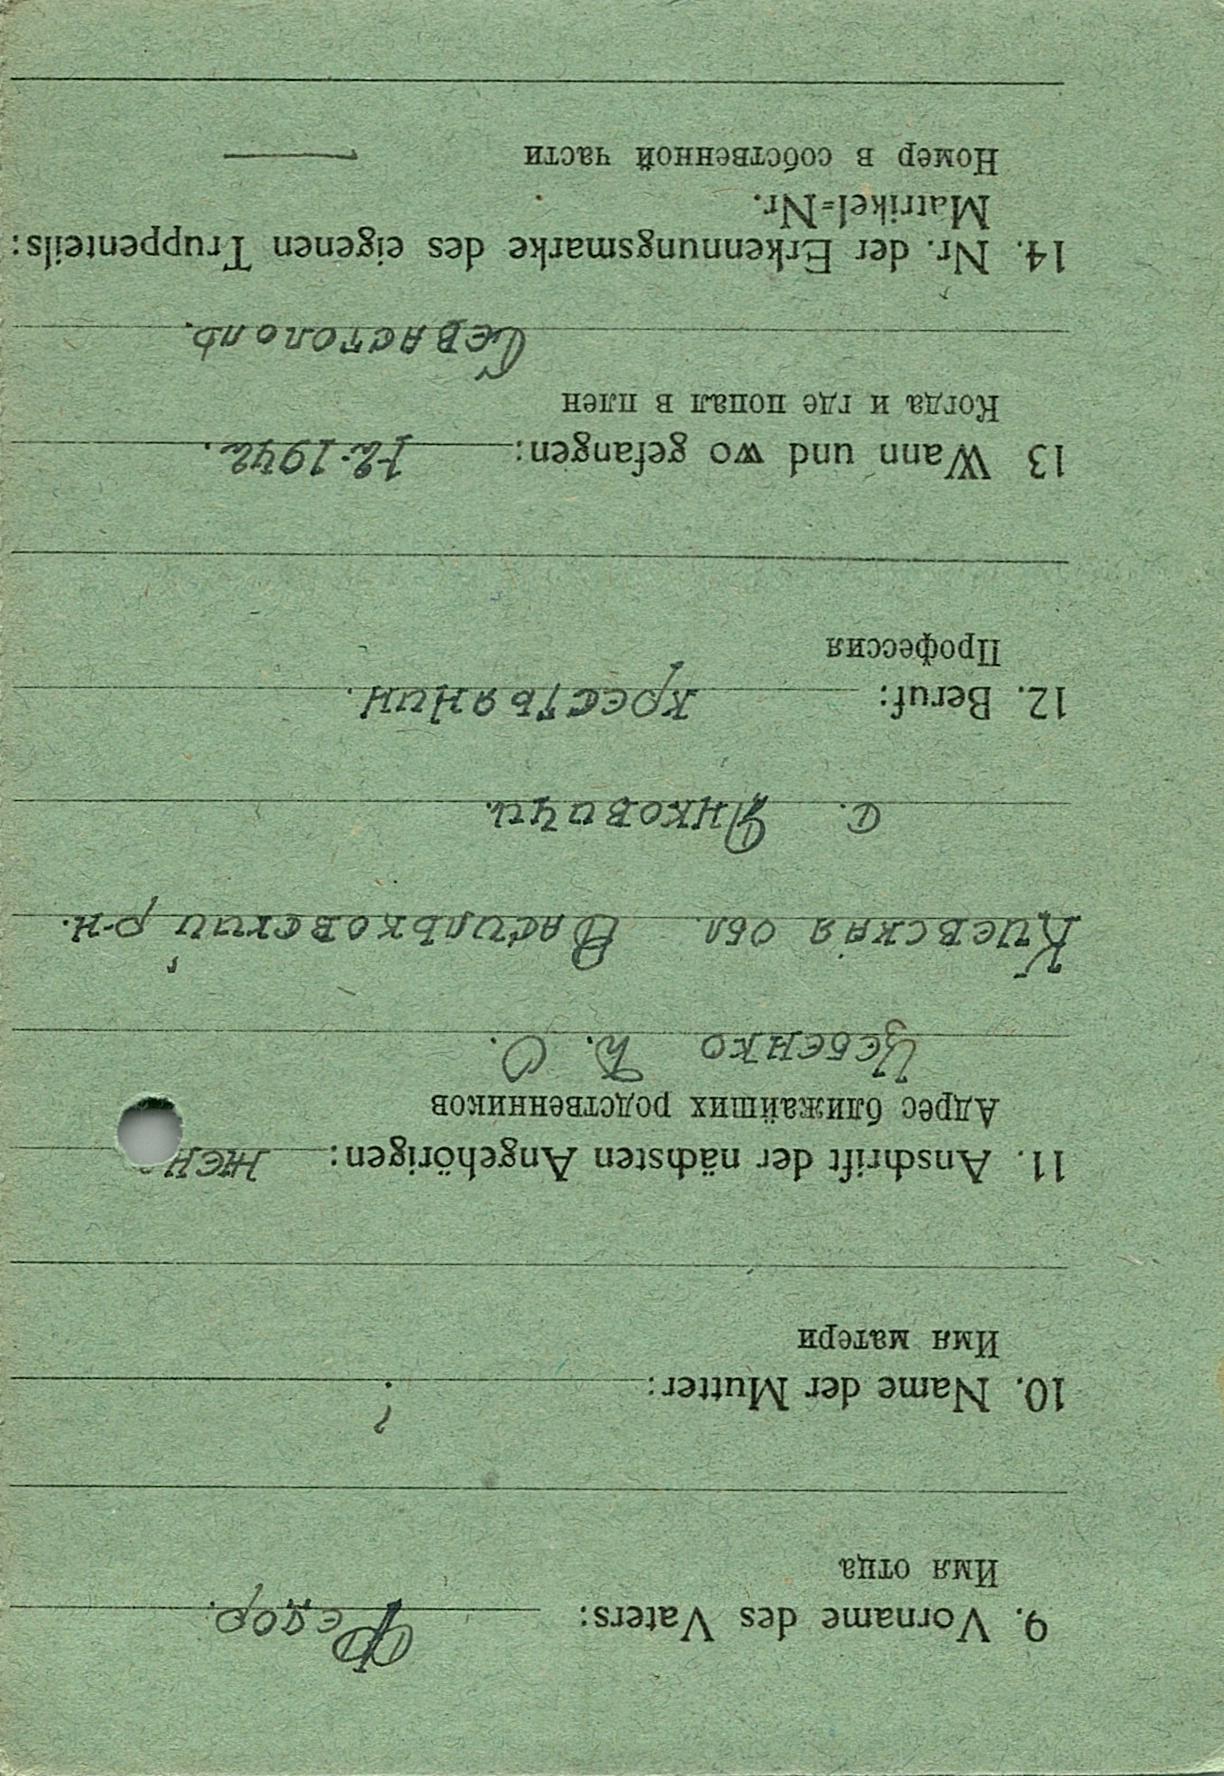 9. Vorname des Vaters: Федор.
Имя отца
10. Name der Mutter: ?
Имя матери
11. Anschrift der nächsten Angehörigen:
Адрес ближайших родственников
О.
Киевская обл. Васильковский р-н.
с. Янковичи.
12. Beruf: крестьянин.
Профессия
13 Wann und wo gefangen: 1942.
Когда и где попал в плен
Севастополь.
14. Nr. der Erkennungsmarke des eigenen Truppenteils:
Matrikel=Nr.
Номер в собственной части —